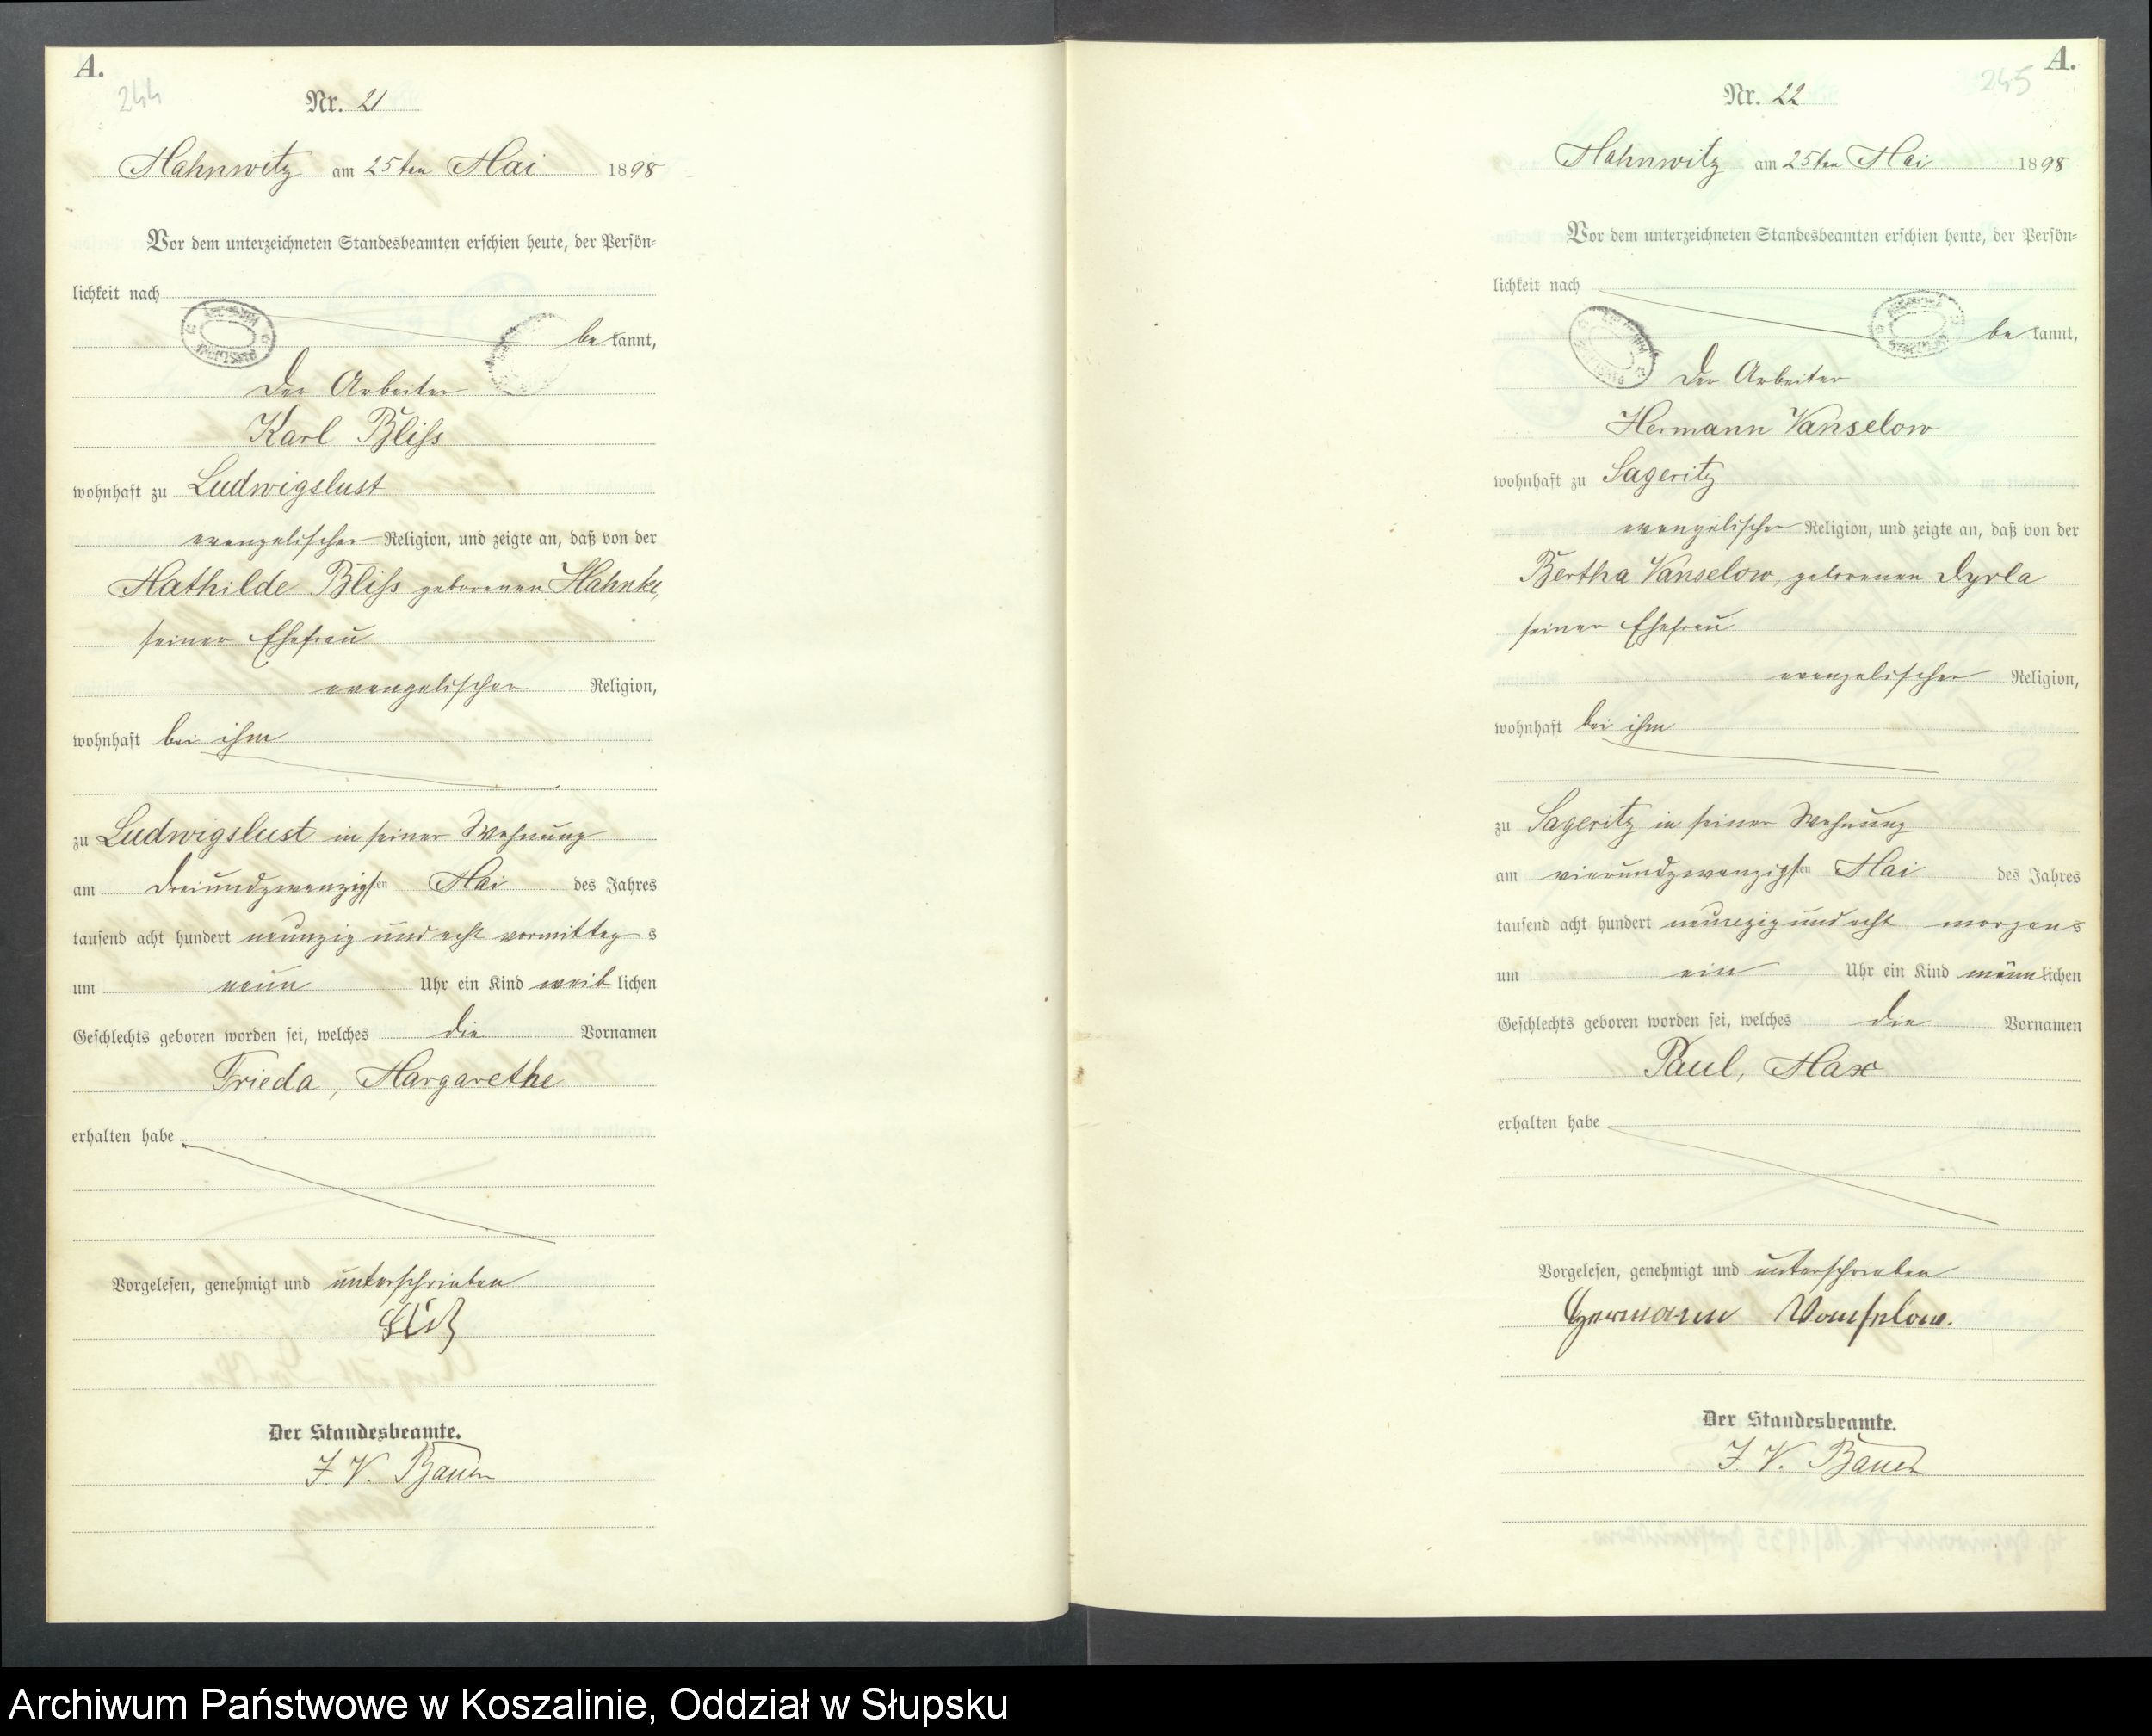 A.
244
Nr. 21
Mahnwitz am 25ten Mai 1898
Vor dem unterzeichneten Standesbeamten erschien heute, der Persön=
lichkeit nach
be kannt,
der Arbeiter
Karl Bliß
wohnhaft zu Ludwigslust
evangelischer Religion, und zeigte an, daß von der
Mathilde Bliß geborenen Hahnke,
seiner Ehefrau
evangelischer Religion,
wohnhaft bei ihm
zu Ludwigslust in seiner Wohnung
am dreiundzwanzigsten Mai des Jahres
tausend acht hundert neunzig und acht vormittag s
um neun Uhr ein Kind weib lichen
Geschlechts geboren worden sei, welches die Vornamen
Frieda, Margarethe
erhalten habe
Vorgelesen, genehmigt und unterschrieben
Bliß
Der Standesbeamte.
J. V. Bauer
A.
245
Nr. 22
Mahnwitz am 25ten Mai 1898
Vor dem unterzeichneten Standesbeamten erschien heute, der Persön=
lichkeit nach
be kannt,
der Arbeiter
Hermann Vanselow
wohnhaft zu Sageritz
evangelischer Religion, und zeigte an, daß von der
Bertha Vanselow, geborenen Dyrla
seiner Ehefrau
evangelischer Religion,
wohnhaft bei ihm
zu Sageritz in seiner Wohnung
am vierundzwanzigsten Mai des Jahres
tausend acht hundert neunzig und acht morgens
um ein Uhr ein Kind männlichen
Geschlechts geboren worden sei, welches die Vornamen
Paul, Max
erhalten habe
Vorgelesen, genehmigt und unterschrieben
Hermann Vanselow.
Der Standesbeamte.
J. V. Bauer
Archiwum Państwowe w Koszalinie, Oddział w Słupsku